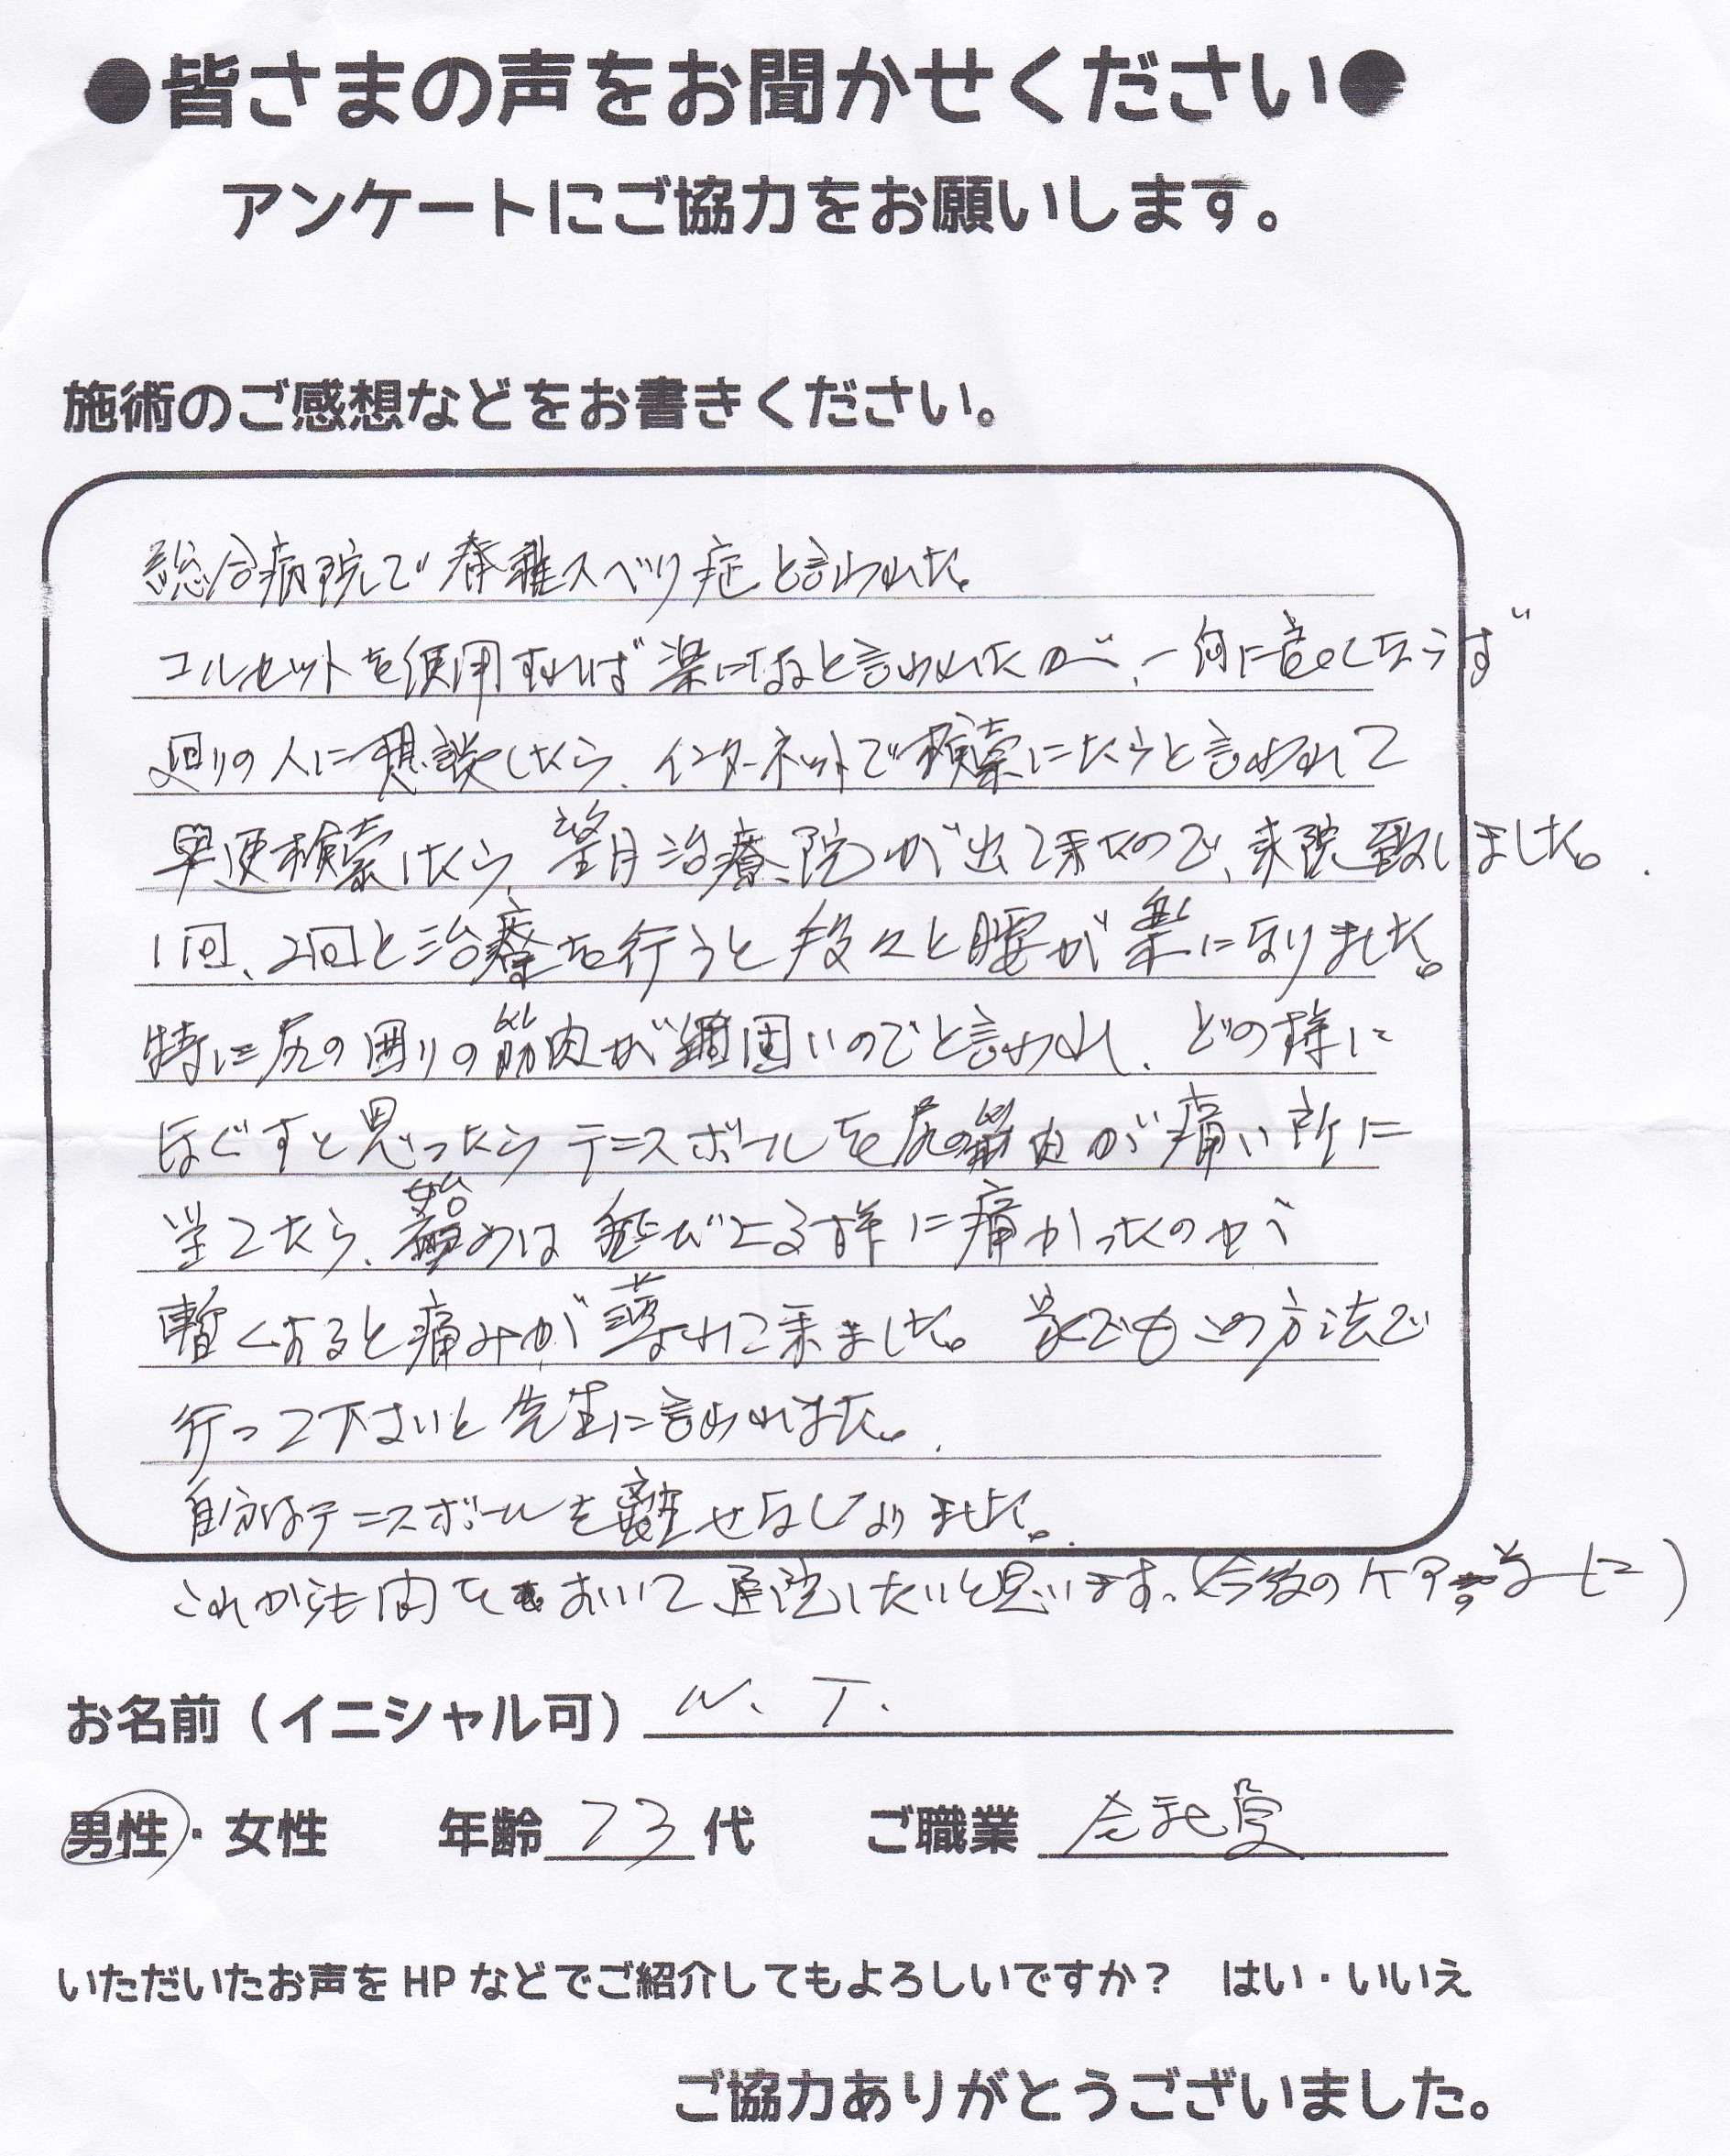 ●皆さまの声をお聞かせください●
アンケートにご協力をお願いします。
施術のご感想などをお書きください。
総合病院で脊椎スベリ症と言われた。
コルセットを使用すれば楽になると言われたが、一向に良くならず
回りの人に相談したら、インターネットで検索したらと言われて
早速検索したら、望月治療院が出て来たので、来院致しました。
1回、2回と治療を行うと段々と腰が楽になりました。
特に尻の囲りの筋肉が固いのでと言われ、どの様に
ほぐすと思ったらテニスボールを尻の筋肉が痛い所に
当てたら、始めは飛び上る様に痛かったのが
暫くすると痛みが薄れて来ました。家でもこの方法で
行って下さいと先生に言われました。
自分はテニスボールを離せなくなりました。
これからも間をおいて通院したいと思います。(今後のケア
お名前(イニシャル可) N. T.
男性・女性 年齢 73 代 ご職業
いただいたお声を HP などでご紹介してもよろしいですか? はい・いいえ
ご協力ありがとうございました。